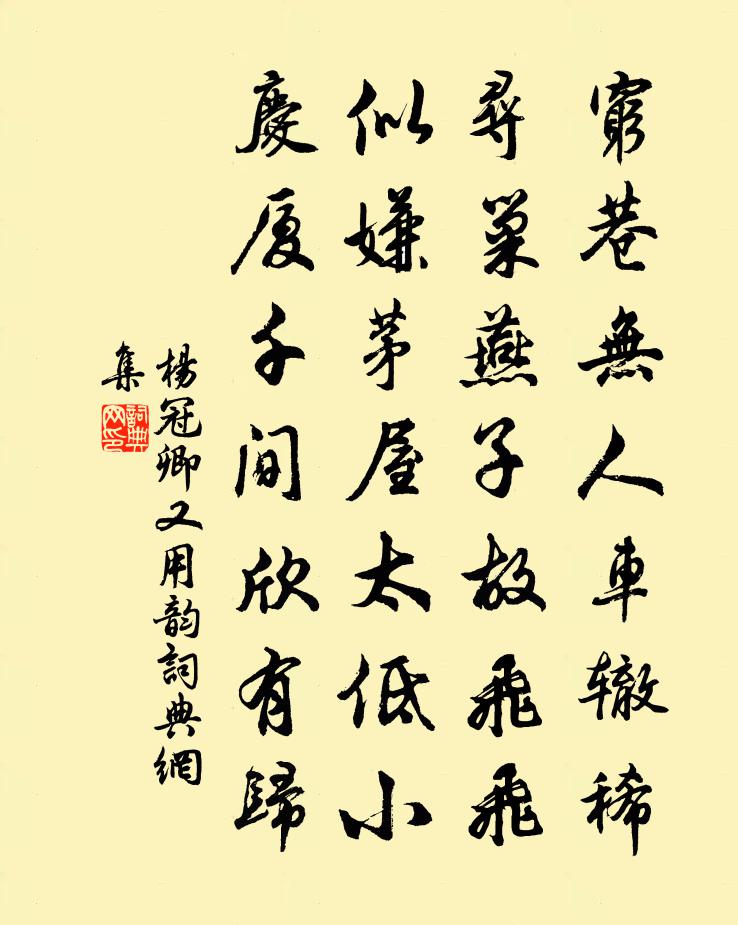 窮巷無人車轍稀
尋巢燕子故飛飛
似嫌茅屋太低小
慶厦千间欣有歸
楊冠卿又用韵詞典網
集
詞典
网印